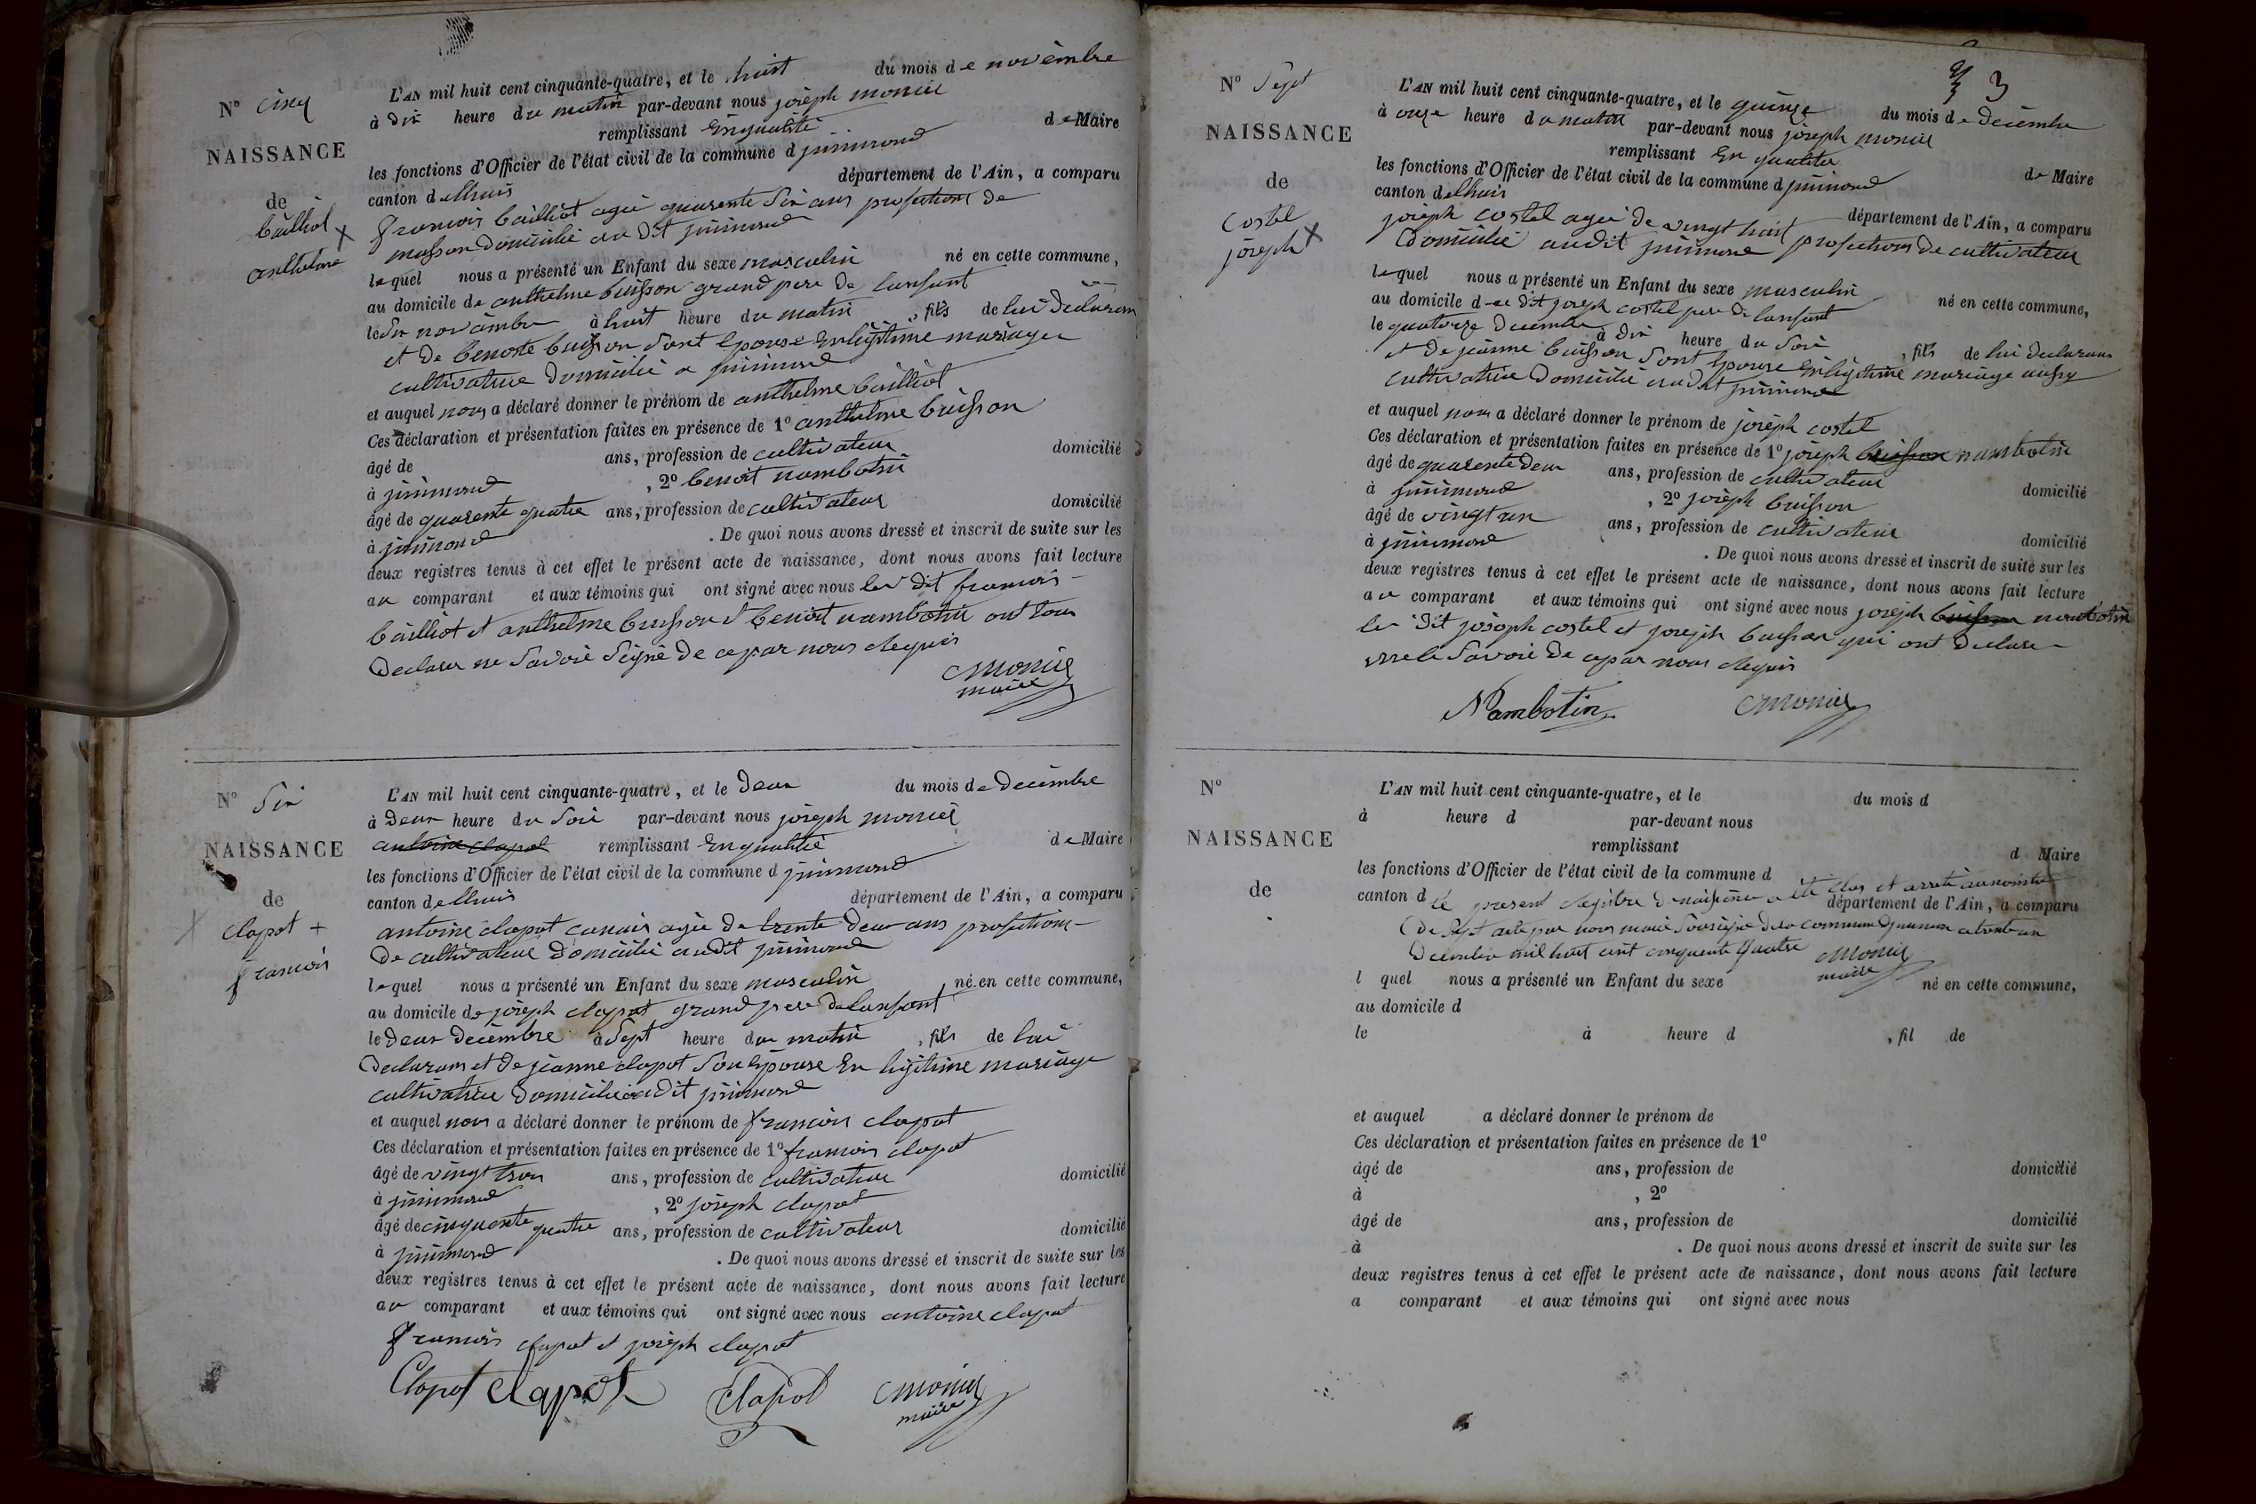 N° cinq
NAISSANCE
de
bailliot
anthelme
L'AN mil huit cent cinquante-quatre, et le huit du mois de novembre
à dix heure du matin par-devant nous joseph monier
remplissant Enqualité de Maire
les fonctions d'Officier de l'état civil de la commune d jnimond
canton delhuis département de l'Ain, a comparu
francois bailliot agée quarente Six ans profection de
masson domicilié au dit jnimond
lequel nous a présenté un Enfant du sexe masculin né en cette commune,
au domicile de anthelme buisson grand pere de lanfant
le Six novembre à huit heure du matin, fils de lui declarans
et de benoite buisson Sont Epouse Enlegitime mariage
cultivatrice domicilié a jnimond
et auquel nous a déclaré donner le prénom de anthelme bailliot
Ces déclaration et présentation faites en présence de 1° anthelme buisson
âgé de ans, profession de cultivateur domicilié
à jnimond, 2° benoit nambotin
âgé de quarente quatre ans, profession de cultivateur domicilié
à jnimond. De quoi nous avons dressé et inscrit de suite sur les
deux registres tenus à cet effet le présent acte de naissance, dont nous avons fait lecture
au comparant et aux témoins qui ont signé avec nous les dit francois
bailliot et anthelme buisson et benoit nambotin ont tous
declare ne Savoir Signé de ce par nous requis
monier
maire
N° Six
NAISSANCE
de
clapot
francois
L'AN mil huit cent cinquante-quatre, et le deux du mois de decembre
à deux heure du Soir par-devant nous joseph monier
antoine clapot remplissant Enqualité de Maire
les fonctions d'Officier de l'état civil de la commune d jnimond
canton delhuis département de l'Ain, a comparu
antoine clapot agée de trente deux ans profections
de cultivateur domicilié audit jnimond
lequel nous a présenté un Enfant du sexe masculin né en cette commune,
au domicile de joseph clapot grand pere de lanfant
le deux decembre à Sept heure du matin, fils de lui
declarans et de jeanne clapot Son Epouse En legitime mariage
cultivatrice domicilié audit jnimond
et auquel nous a déclaré donner le prénom de francois clapot
Ces déclaration et présentation faites en présence de 1° francois clapot
âgé de vingt trois ans, profession de cultivateur domicilié
à jnimond, 2° joseph clapot
âgé de cinquente quatre ans, profession de cultivateur domicilié
à jnimond. De quoi nous avons dressé et inscrit de suite sur les
deux registres tenus à cet effet le présent acte de naissance, dont nous avons fait lecture
au comparant et aux témoins qui ont signé avec nous antoine clapot
francois clapot et joseph clapot
Clapot clapot Clapot monier
maire
3
N° Sept
NAISSANCE
de
Costel
joseph
L'AN mil huit cent cinquante-quatre, et le quinze du mois de decembre
à onze heure du matin par-devant nous joseph monier
remplissant En qualitée de Maire
les fonctions d'Officier de l'état civil de la commune d jnimond
canton delhuis département de l'Ain, a comparu
joseph costel agée de vingt huit profections de cultivateur
domicilié audit jnimond
lequel nous a présenté un Enfant du sexe masculin né en cette commune,
au domicile d dit joseph costel pere de lanfant
le quatorze decembre à dix heure du Soir, fils de lui declarans
et de jeanne buisson Sont Epouse Enlegitime mariage aussy
cultivatrice domicilié audit jnimond
et auquel nous a déclaré donner le prénom de joseph costel
Ces déclaration et présentation faites en présence de 1° joseph buisson nambotin
âgé de quarente deux ans, profession de cultivateur domicilié
à jnimond, 2° joseph buisson
âgé de vingt un ans, profession de cultivateur domicilié
à jnimond. De quoi nous avons dressé et inscrit de suite sur les
deux registres tenus à cet effet le présent acte de naissance, dont nous avons fait lecture
au comparant et aux témoins qui ont signé avec nous joseph buisson nambotin
les dit joseph costel et joseph buisson qui ont declare
Savoir de ce par nous requis
Nambotin monier
N°
NAISSANCE
de
L'AN mil huit cent cinquante-quatre, et le du mois d
à heure d par-devant nous
remplissant d Maire
les fonctions d'Officier de l'état civil de la commune d
canton d département de l'Ain, a comparu
le present registre de naissance a été clos et arreté au nombre
de Sept acte par nous maire Soussigné de la commune djnimond le trente un
decembre mil huit cent cinquente quatre monier
maire
l quel nous a présenté un Enfant du sexe né en cette commune,
au domicile d
le à heure d , fil de
et auquel a déclaré donner le prénom de
Ces déclaration et présentation faites en présence de 1°
âgé de ans, profession de domicilié
à , 2°
âgé de ans, profession de domicilié
à . De quoi nous avons dressé et inscrit de suite sur les
deux registres tenus à cet effet le présent acte de naissance, dont nous avons fait lecture
a comparant et aux témoins qui ont signé avec nous